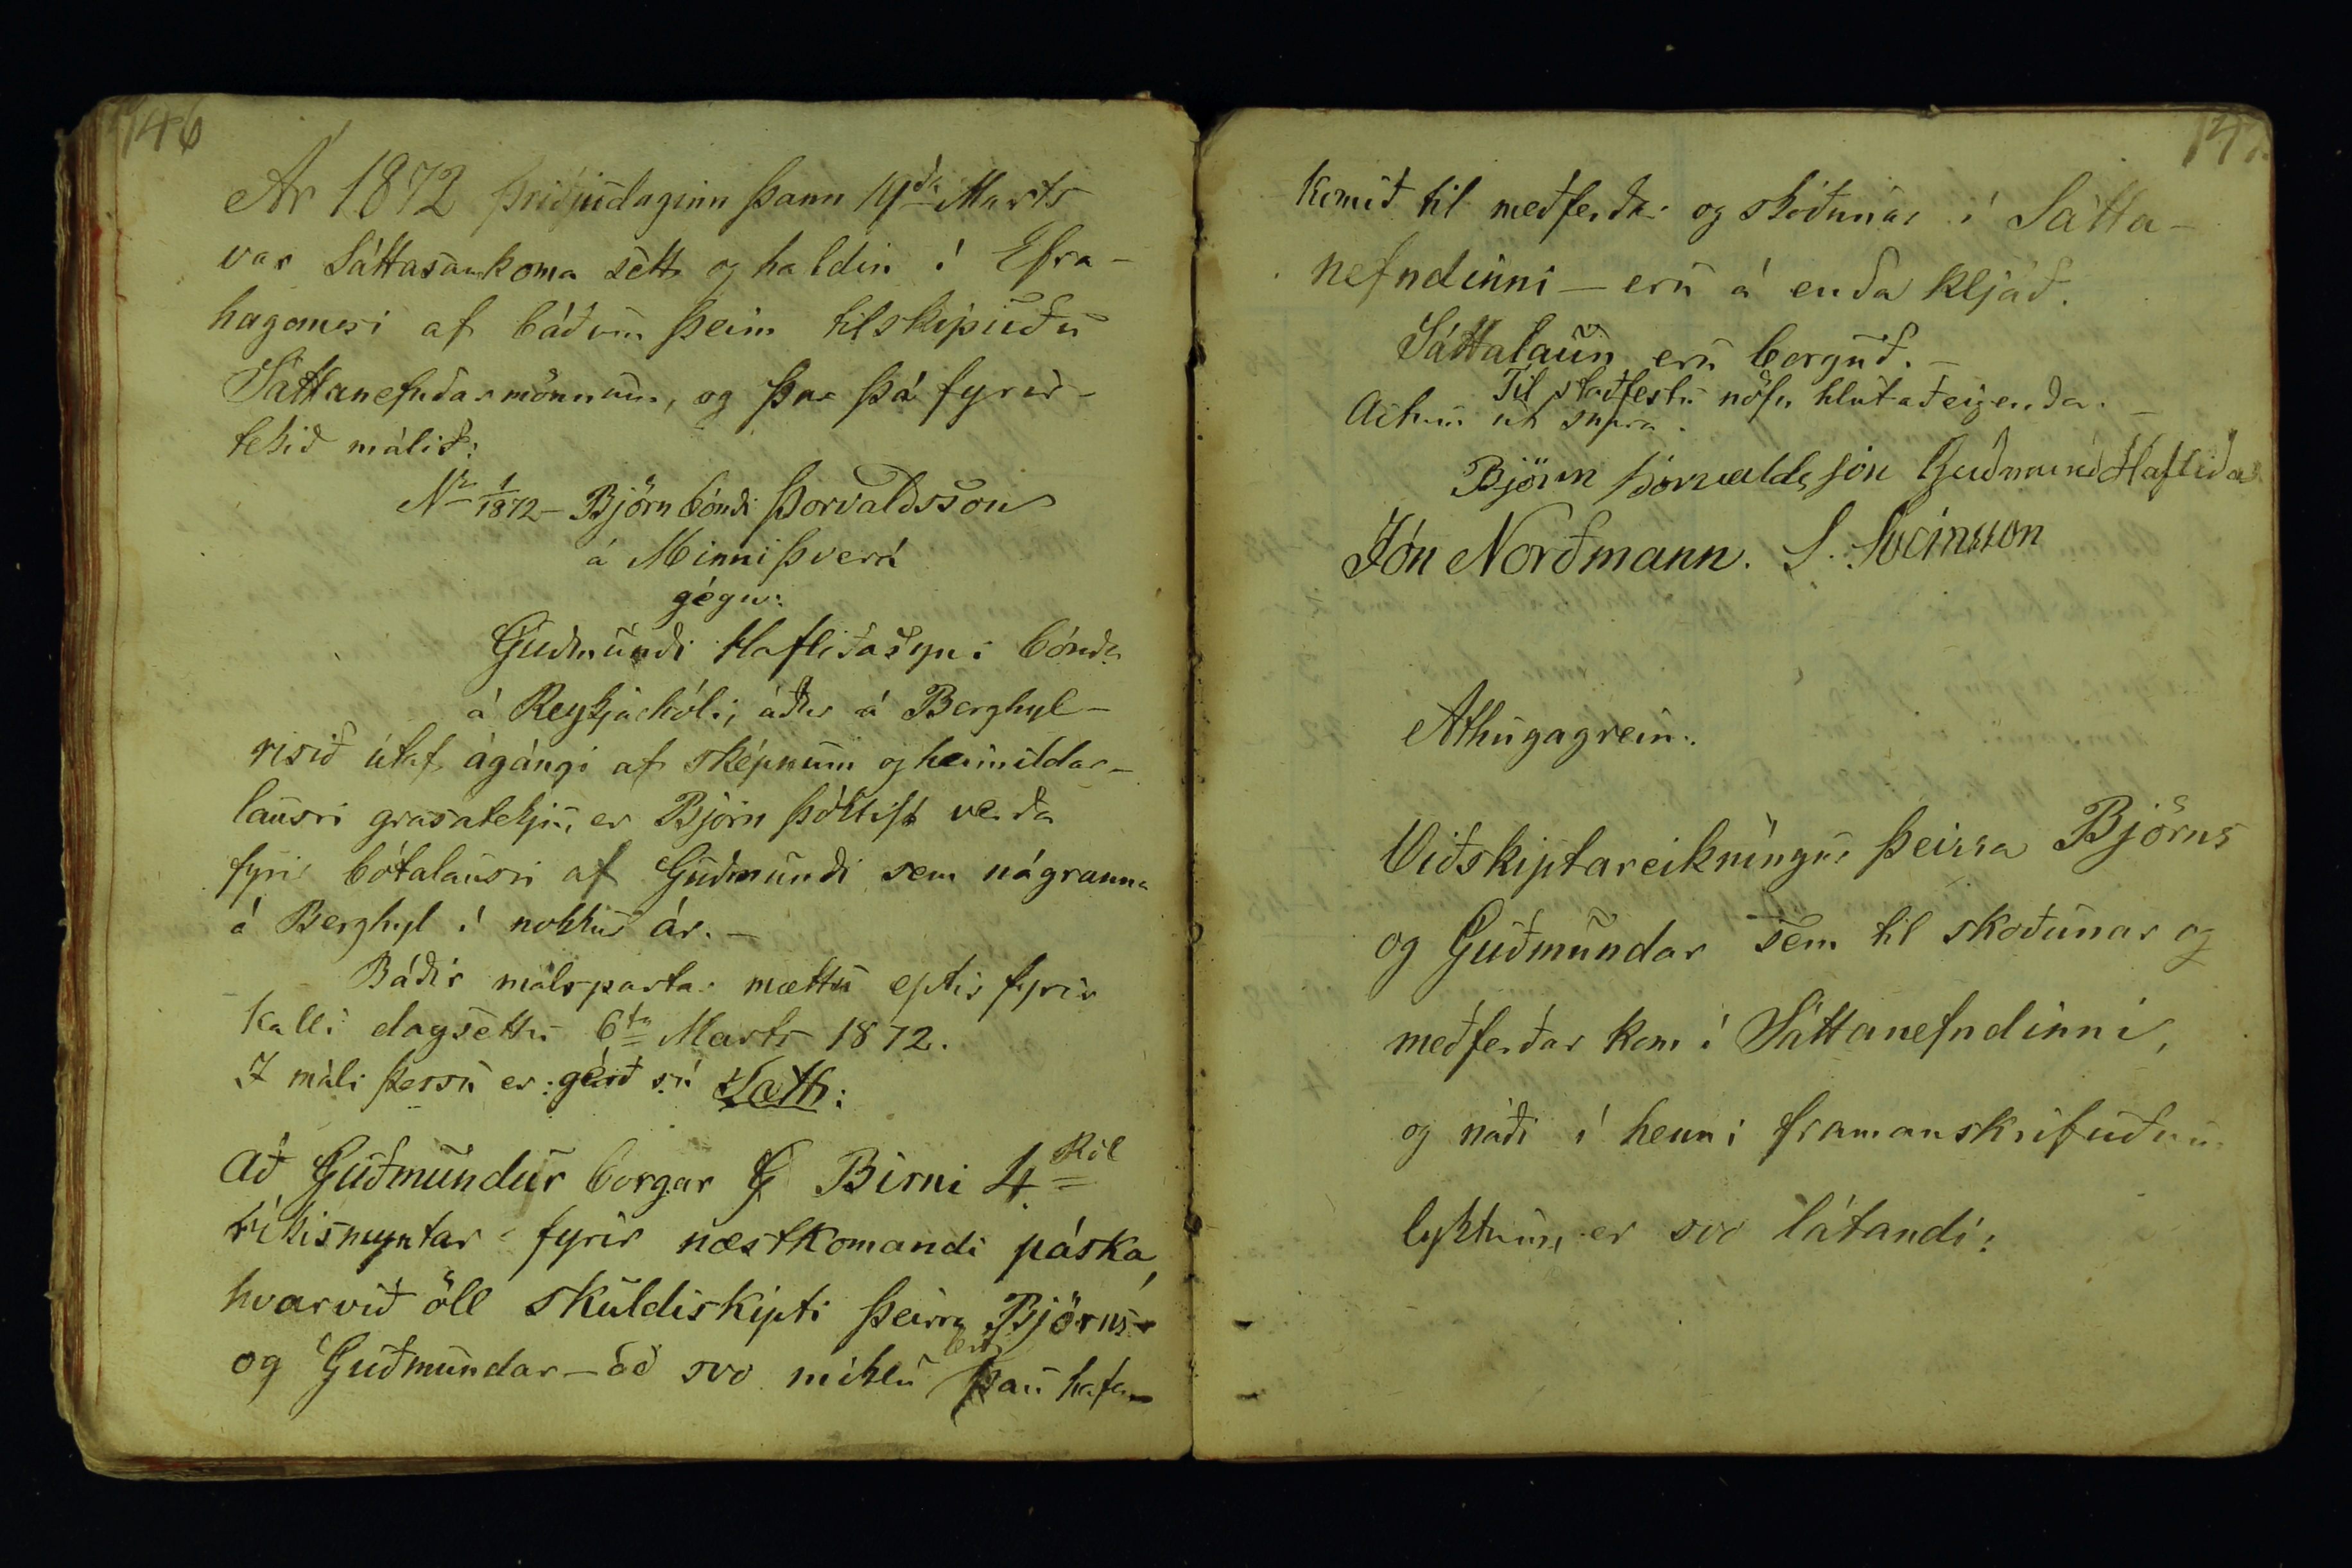 146
Ár 1872 þriðjudaginn þann 19da Marts
var Sáttasamkoma sett og haldin í Efra-
hagonesi af báðum þeim tilskipuðu
Sáttanefndarmönnum, og þar þá fyrir-
tekið málið:
No 1/1872 - Björn bóndi Þorvaldsson
á Minni þverá
gégn:
Guðmundi Hafliðasyni bónda
á Reykjarhóli, áður á Berghyl-
risið útaf ágángi af sképnum og heimildar-
lausri grasatekju, er Björn þóktist verða
fyrir bótalausri af Guðmundi sem nágranna
á Berghyl í nokkur ár. -
Báðir málspartar mættu eptir fyrir
kalli dagsettu 6ta Marts 1872.
I máli þessu er gérð sú Sætt:
Að Guðmundur borgar Birni 4 Rdl
ríkismyntar fyrir næstkomandi páska,
hvarvið öll skuldiskipti þeirra Björns-
og Guðmundar - að svo miklu leiti þau hafa-
147.
komið til meðferðar og skoðunar í Sátta-
nefndinni - eru á enda kljáð.
Sáttalaun eru borguð. -
Til staðfestu nöfn hlutaðeigenda. -
Actum ut supra.
Björn Þorvaldsson Guðmund Hafliðas
Jón Norðmann. S. Sveinsson
Athugagrein:
Viðskiptareikníngur þeirra Björns
og Guðmundar sem til skoðunar og
meðferðar kom í Sáttanefndinni,
og náði í henni framanskrifuðum
lyktum, er svo látandi: